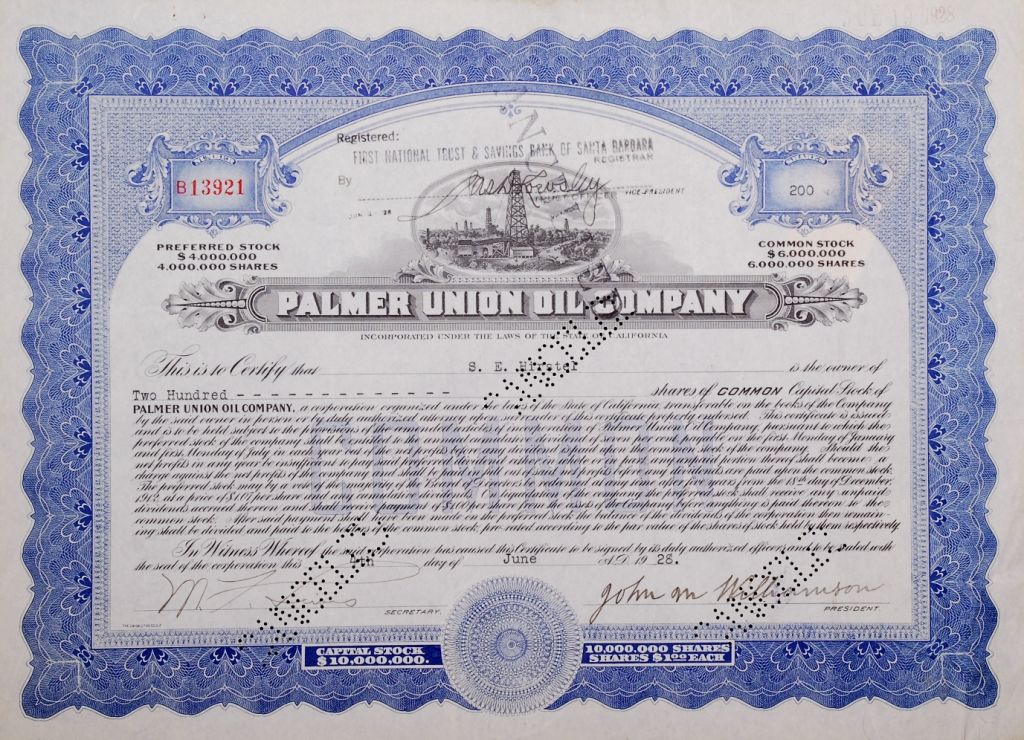 JUL 19 1928
Registered:
FIRST NATIONAL TRUST & SAVINGS BANK OF SANTA BARBARA
REGISTRAR
By
VICE-PRESIDENT
NUMBER
B13921
SHARES
200
PREFERRED STOCK
$4,000,000
4,000,000 SHARES
COMMON STOCK
$6,000,000
6,000,000 SHARES
PALMER UNION OIL COMPANY
INCORPORATED UNDER THE LAWS OF THE STATE OF CALIFORNIA
This is to Certify that S. E. is the owner of
Two Hundred - - - - - - - - - - - - - - shares of COMMON Capital Stock of
PALMER UNION OIL COMPANY, a corporation organized under the laws of the State of California, transferable on the books of the Company
by the said owner in person or by duly authorized attorney upon surrender of this certificate properly endorsed. This certificate is issued
and is to be held subject to the by-laws of the company and the duly adopted rules of incorporation of Palmer Union Oil Company, pursuant to which the
preferred stock of the company shall be entitled to the annual cumulative dividend of seven per cent, payable on the first Monday of January
and first Monday of July in each year out of the net profits before any dividend is paid upon the common stock of the company. Should the
net profits in any year be insufficient to pay said preferred dividend the amount remaining unpaid thereon shall become a
charge against the net profits of the company and shall be paid in full out of the net profits before any dividends are paid upon the common stock.
The preferred stock may be, by vote of the majority of the Board of Directors, redeemed at any time after 3 years from the 18th day of December,
1912, at a price of $1.07 per share and any cumulative dividends. Upon liquidation of the company the preferred stock shall receive any unpaid
dividends accrued thereon and shall receive payment of $1.00 per share from the assets of the company before anything is paid thereon to the
common stock. After said payment shall have been made on the preferred stock the balance of the dividend of the corporation then remain-
ing shall be divided and paid to the holders of the common stock, pro rated according to the par value of the shares of stock held by them respectively.
COMMON
In Witness Whereof the said corporation has caused this Certificate to be signed by its duly authorized officers and to be sealed with
the seal of the corporation this 4th day of June A.D. 1928.
SECRETARY.
John M Williamson
PRESIDENT.
CAPITAL STOCK
$10,000,000.
10,000,000 SHARES
SHARES $1.00 EACH